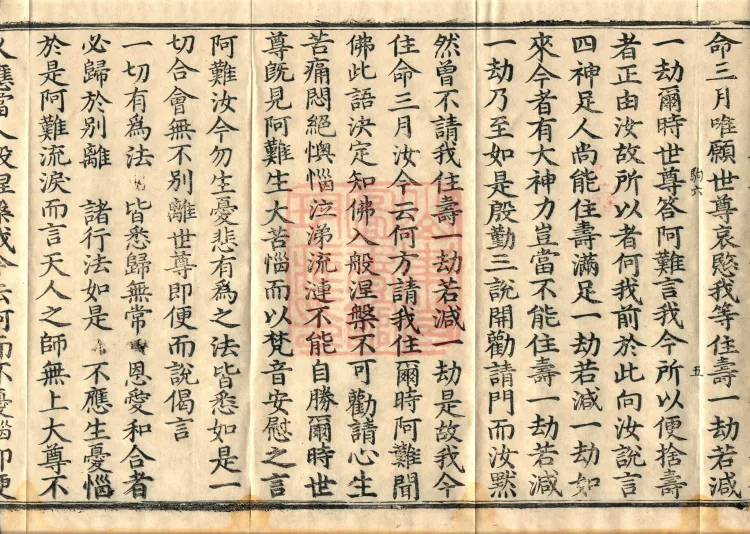 命三月唯願世尊哀愍我等住壽一劫若減
一劫爾時世尊答阿難言我今所以便捨壽
駒六
五
者正由汝故所以者何我前於此向汝說言
四神足人尚能住壽滿足一劫若減一劫如
來今者有大神力豈當不能住壽一劫若減
一劫乃至如是殷勤三說開勸請門而汝黙
然曽不請我住壽一劫若減一劫是故我今
住命三月汝今云何方請我住爾時阿難聞
佛此語決定知佛入般涅槃不可勸請心生
苦痛悶絕懊惱泣涕流漣不能自勝爾時世
尊既見阿難生大苦惱而以梵音安慰之言
阿難汝今勿生憂悲有爲之法皆悉如是一
切合會無不別離世尊即便而說偈言
一切有爲法 皆悉歸無常 恩愛和合者
必歸於別離 諸行法如是 不應生憂惱
於是阿難流淚而言天人之師無上大尊不
久應當入般涅槃我今云何而不憂惱即便